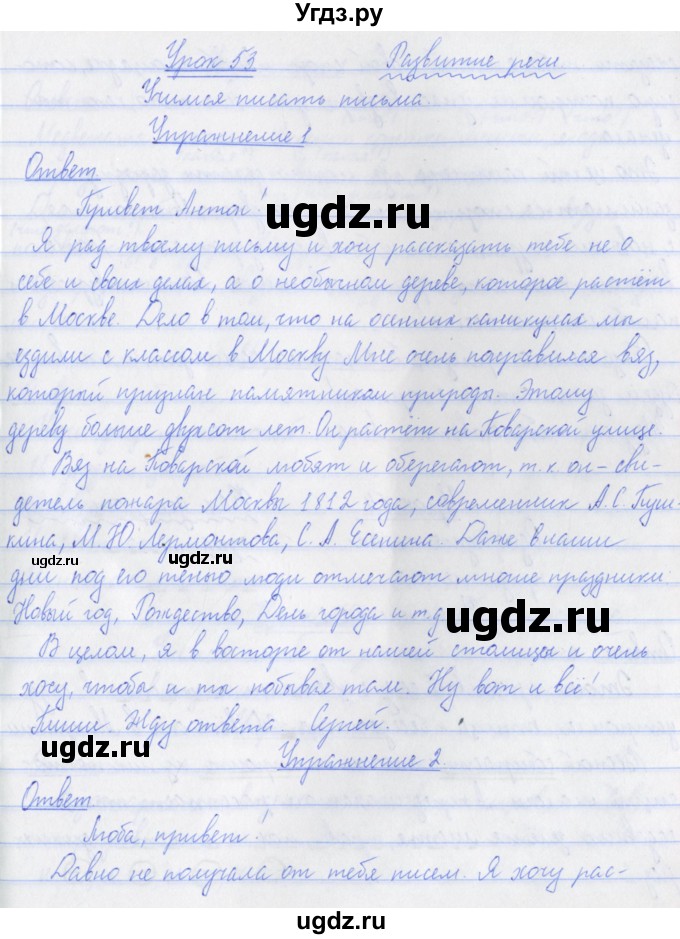 Угдз.ру
Урок 53 Развитие речи
Учимся писать письма.
Упражнение 1
Ответ
Привет Антон!
ugdz.ru
Я рад твоему письму и хочу рассказать тебе не о
себе и своих делах, а о необычном дереве, которое растёт
в Москве. Дело в том, что на осенних каникулах мы
ездили с классом в Москву Мне очень понравился вяз,
который признан памятником природы. Этому
дереву больше двухсот лет. Он растёт на Поварской улице.
Вяз на Поварской любят и оберегают, т.к. он - сви-
детель пожара Москвы 1812 года, современник А.С. Пуш-
кина, М.Ю. Лермонтова, С.А. Есенина. Даже в наши
ugdz.ru ugdz.ru
дни под его тенью люди отмечают многие праздники
Новый год, Рождество, День города и т.д
ugdz.ru
В целом, я в восторге от нашей столицы и очень
хочу, чтобы и ты побывал там. Ну вот и всё!
Пиши. Жду ответа Сергей.
ugdz.ru
Упражнение 2
Ответ
Люба, привет!
Давно не получала от тебя писем. Я хочу рас-
ugdz.ru